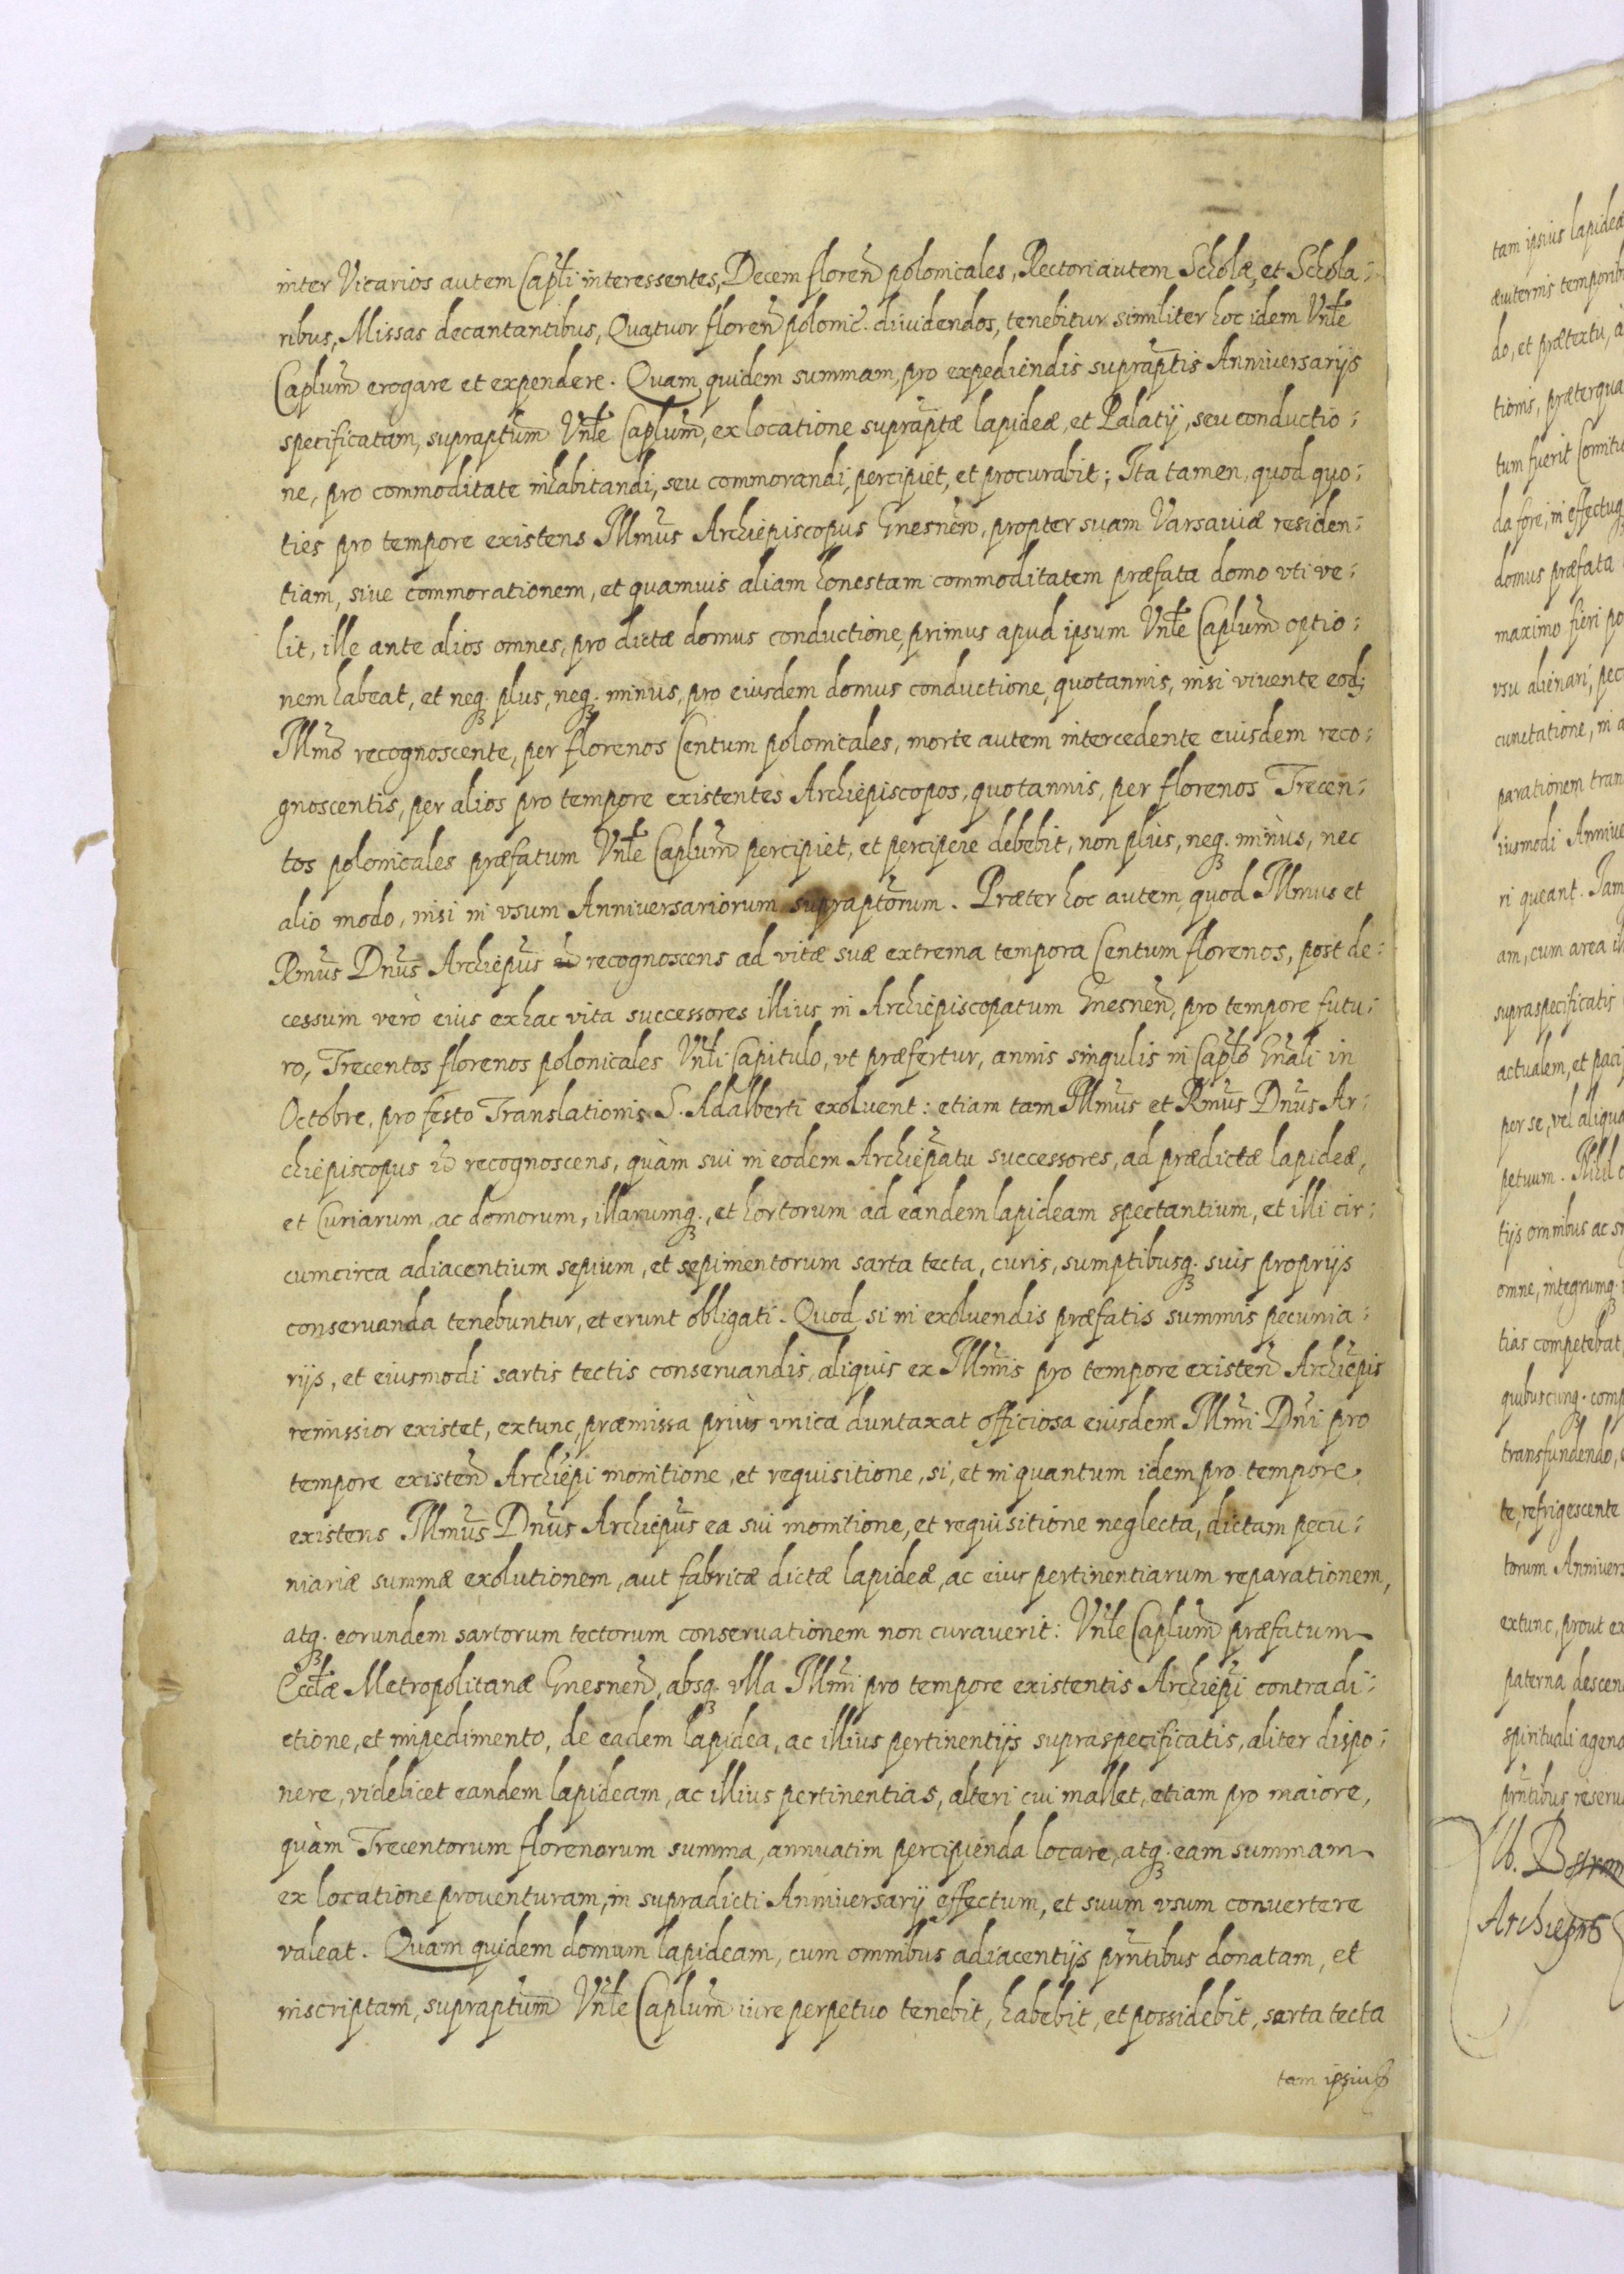 inter Vicarios autem Capłi interessentes, Decem floreñ polonicales, Rectori autem Scholæ, et Schola:
ribus, Missas decantantibus, Quatuor floreñ polonic. diuidendos, tenebitur similiter hoc idem Vnłe
Caplum erogare et expendere. Quam quidem summam, pro expediendis supraptis Anniuersarijs
specificatam, supraptum Vnłe Caplum, ex locatione supraptæ lapideæ, et Palatij, seu conductio:
ne, pro commoditate inhabitandi, seu commorandi, percipiet, et procurabit; Ita tamen, quod quo:
ties pro tempore existens Illmus Archiepiscopus Gnesnen, propter suam Varsauiæ residen:
tiam, siue commorationem, et quamuis aliam honestam commoditatem præfata domo vti ve:
lit, ille ante alios omnes, pro dictæ domus conductione, primus apud ipsum Vnłe Caplum optio:
nem habeat, et neq. plus, neq. minus, pro eiusdem domus conductione, quotannis, nisi vivente eod:
Illmo recognoscente, per florenos Centum polonicales, morte autem intercedente eiusdem reco:
gnoscentis, per alios pro tempore existentes Archiepiscopos, quotannis, per florenos Trecen:
tos polonicales præfatum Vnłe Caplum percipiet, et percipere debebit, non plus, neq. minùs, nec
alio modo, nisi in vsum Anniuersariorum supraptorum. Præter hoc autem, quod Illmus et
Rmus Dnus Archiepus recognoscens ad vitæ suæ extrema tempora Centum florenos, post de:
cessum verò eius ex hac vita successores illius in Archiepiscopatum Gnesnen, pro tempore futu:
ro, Trecentos florenos polonicales Vnłi Capitulo, vt præfertur, annis singulis in Capło Gnali in
Octobre, pro festo Translationis S. Adalberti exoluent: etiam tam Illmus et Rmus Dnus Ar:
chiepiscopus id recognoscens, quàm sui in eodem Archiepatu successores, ad prædictæ lapideæ,
et Curiarum, ac domorum, illarumq., et hortorum ad eandem lapideam spectantium, et illi cir:
cumcirca adiacentium sepium, et sepimentorum sarta tecta, curis, sumptibusq. suis proprijs
conseruanda tenebuntur, et erunt obligati. Quod si in exoluendis præfatis summis pecunia:
rijs, et eiusmodi sartis tectis conseruandis, aliquis ex Illmis pro tempore existen Archiepis
remissior existet, extunc, præmissa priùs vnica duntaxat officiosa eiusdem Illmi Dni pro
tempore existen Archiepi monitione, et requisitione, si, et in quantum idem pro tempore
existens Illmus Dnus Archiepus ea sui monitione, et requisitione neglecta, dictam pecu:
niariæ summæ exolutionem, aut fabricæ dictæ lapideæ, ac eius pertinentiarum reparationem,
atq. eorundem sartorum tectorum conseruationem non curauerit: Vnłe Caplum præfatum
Ecclæ Metropolitanæ Gnesnen, absq. vlla Illmi pro tempore existentis Archiepi contradi:
ctione, et impedimento, de eadem lapidea, ac illius pertinentijs supraspecificatis, aliter dispo:
nere, videlicet eandem lapideam, ac illius pertinentias, alteri cui mallet, etiam pro maiore,
quàm Trecentorum florenorum summa, annuatim percipienda locare, atq. eam summam
ex locatione prouenturam, in supradicti Anniuersarij effectum, et suum vsum conuertere
valeat. Quam quidem domum lapideam, cum omnibus adiacentijs prntibus donatam, et
inscriptam, supraptum Vnłe Caplum iure perpetuo tenebit, habebit, et possidebit, sarta tecta
tam ipsius
tam ipsius lapideæ
æuternis temporib
do, et prætextu, a
tionis, præterqua
tum fuerit
da fore, in effectuq
domus præfata
maximo fieri po
vsu alienari, pec
cunctatione, in a
parationem tran
iusmodi Anniue
ri queant. Iam
am, cum area il
supraspecificatis
actualem, et paci
per se, vel aliqua
petuum. Nihil
tijs omnibus ac
omne, integrumq.
tias competebat
quibuscunq. comp
transfundendo,
te, refrigescente
torum Anniuers
extunc, prout ex
paterna descen
spirituali agend
prntibus reseru
Archiepus